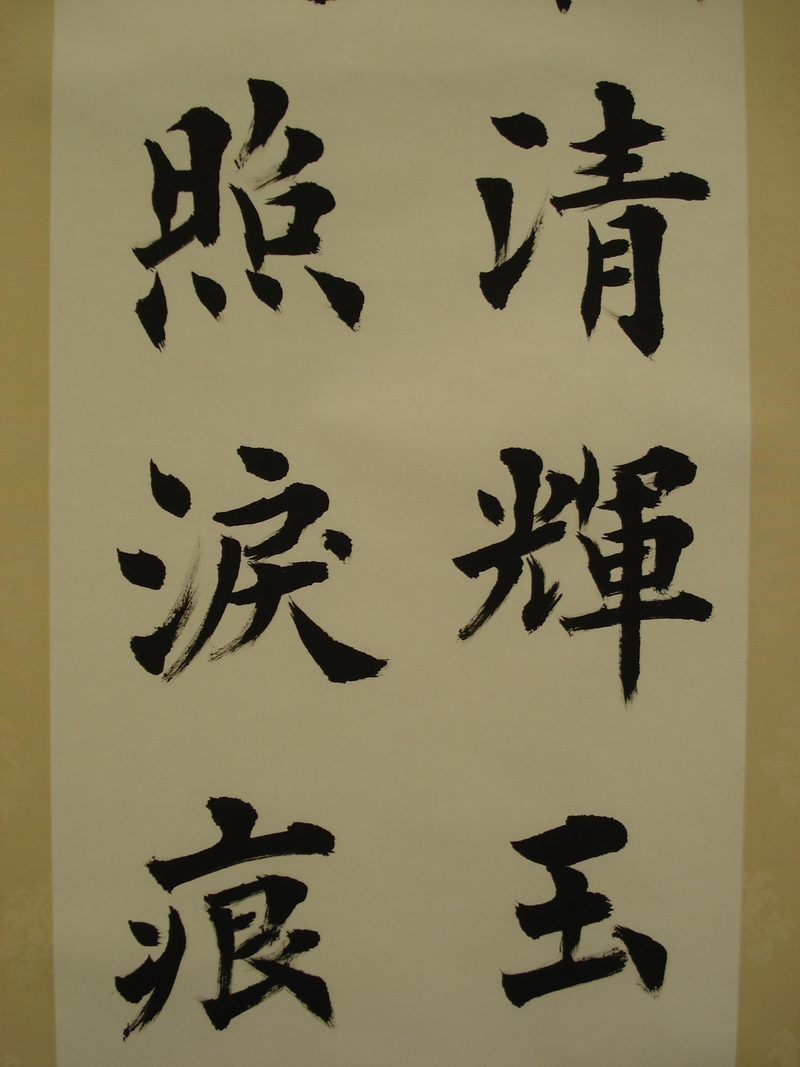 清輝玉
照淚痕